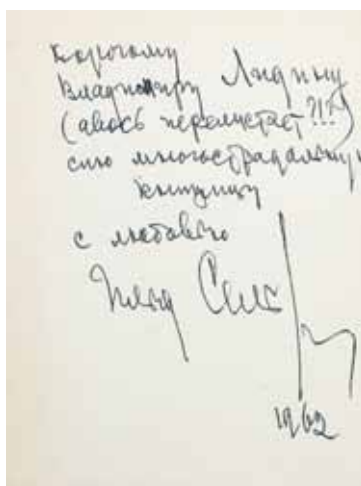 Дорогому
Владимиру Лидину
(авось перелистает?!?)
сию многострадальную
книжицу
с любовью
Илья Сель
1962